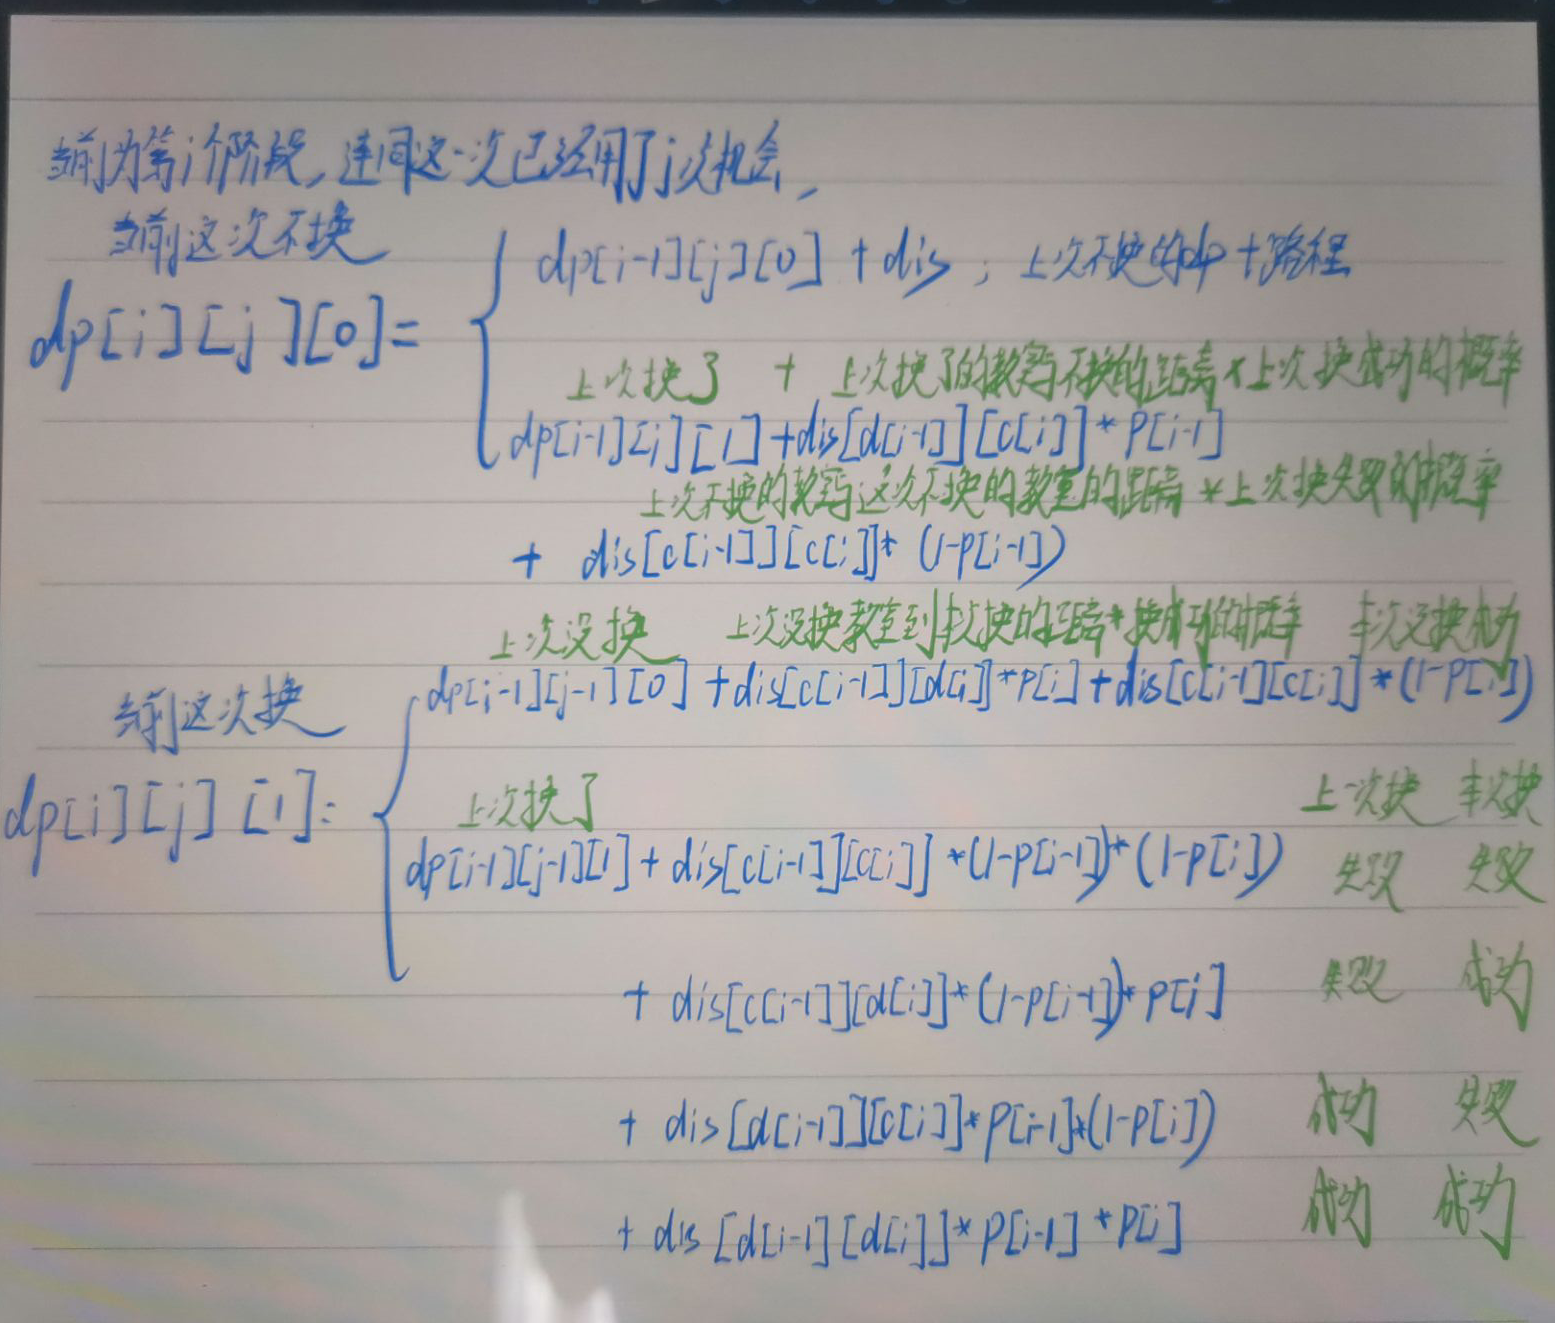 当前为第i个阶段,连同这一次已经用了j次机会,
当前这次不换
dp[i][j][0]=
dp[i-1][j][0] + dis ; 上次不换的dp+路程
上次换了 + 上次换了的教室不换的距离*上次换成功的概率
dp[i-1][j][1]+dis[d[i-1]][c[i]]*p[i-1]
上次不换的教室这次不换的教室的距离*上次换失败的概率
+ dis[c[i-1]][c[i]]*(1-p[i-1])
上次没换 上次没换教室到本次换的距离*换成功的概率 本次没换成功
当前这次换
dp[i-1][j-1][0] +dis[c[i-1]][d[i]]*p[i]+dis[c[i-1][c[i]]*(1-p[i])
dp[i][j][1]=
上次换了 上一次换 本次换
dp[i-1][j-1][1]+dis[c[i-1]][c[i]]*(1-p[i-1])*(1-p[i]) 失败 失败
+ dis[c[i-1]][d[i]]*(1-p[i-1])*p[i] 失败 成功
+ dis[d[i-1]][c[i]]*p[i-1]*(1-p[i]) 成功 失败
+ dis[d[i-1][d[i]]*p[i-1]*p[i] 成功 成功